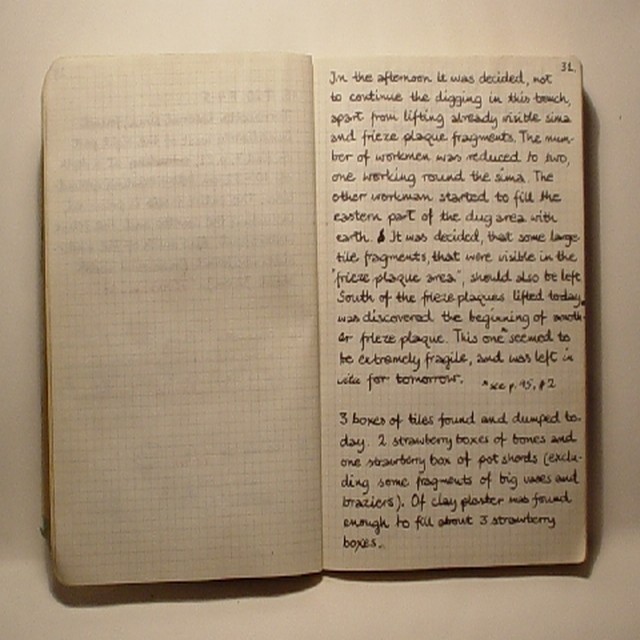 31.
In the afternoon it was decided, not
to continue the digging in this trench,
apart from lifting already visible sima
and frieze plaque fragments. The num-
ber of workmen was reduced to two,
one working round the sima. The
other workman started to fill the
eastern part of the dug area with
earth. It was decided, that some large
tile fragments, that were visible in the
"frieze plaque area", should also be left.
South of the frieze plaques lifted today,
was discovered the beginning of anoth-
er frieze plaque. This one* seemed to
be extremely fragile, and was left in
situ for tomorrow. *see p. 45, #2
3 boxes of tiles found and dumped to-
day. 2 strawberry boxes of bones and
one strawberry box of pot sherds (exclu-
ding some fragments of big vases and
braziers). Of clay plaster was found
enough to fill about 3 strawberry
boxes.